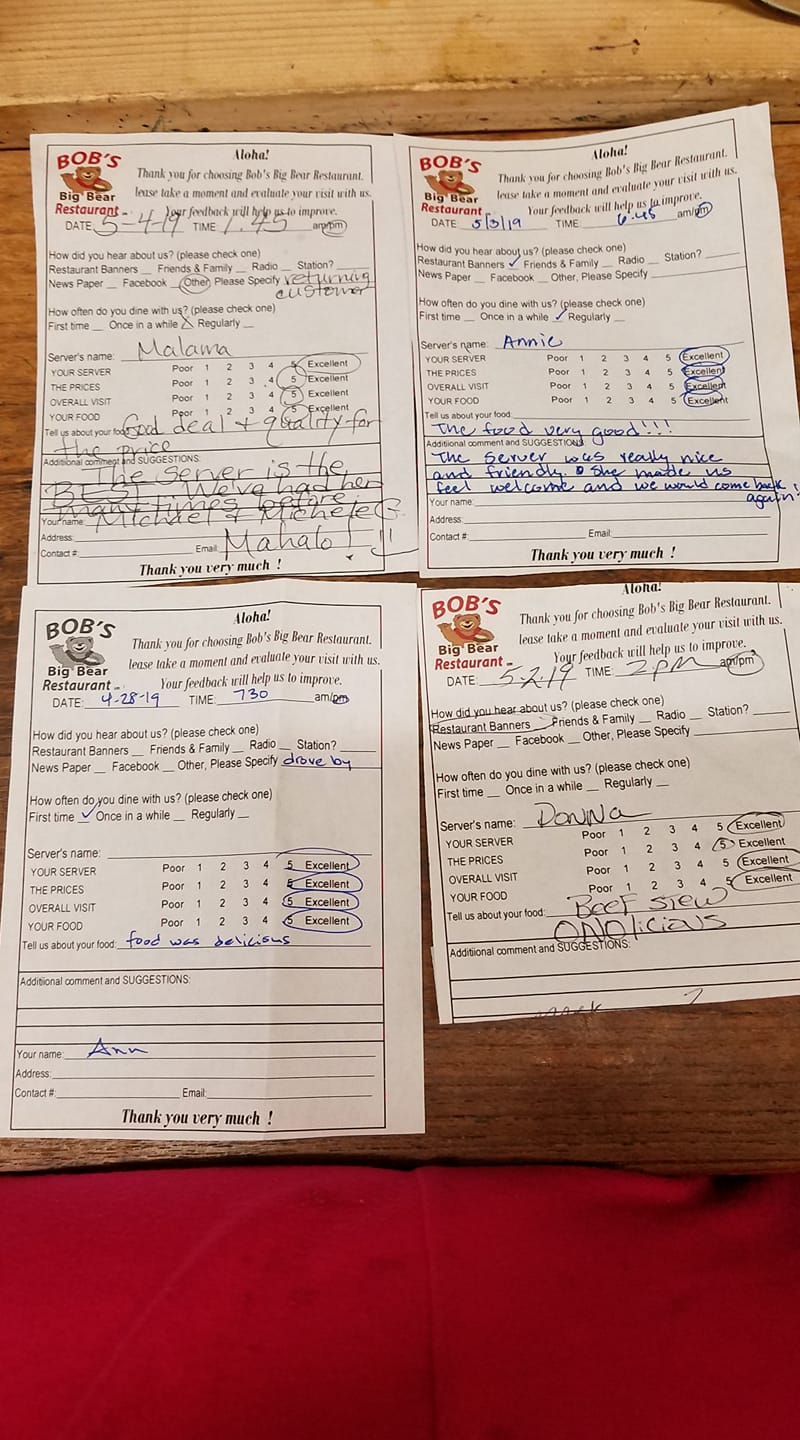 BOB'S
Big Bear
Restaurant
Aloha!
Thank you for choosing Bob's Big Bear Restaurant.
lease take a moment and evaluate your visit with us.
Your feedback will help us to improve.
DATE: 5-4-19 TIME: 1:45 am/pm
How did you hear about us? (please check one)
Restaurant Banners __ Friends & Family __ Radio __ Station? ____
News Paper __ Facebook __ Other, Please Specify returning
customer
How often do you dine with us? (please check one)
First time __ Once in a while __ Regularly __
Server's name: Malama
YOUR SERVER Poor 1 2 3 4 5 Excellent
THE PRICES Poor 1 2 3 4 5 Excellent
OVERALL VISIT Poor 1 2 3 4 5 Excellent
YOUR FOOD Poor 1 2 3 4 5 Excellent
Tell us about your food: Good deal & quality for
the price
Additiional comment and SUGGESTIONS:
The server is the
BEST. We've had her
many times before.
Your name: Michael & Michele
Address:
Contact #: Email: Mahalo!
Thank you very much !
BOB'S
Big Bear
Restaurant
Aloha!
Thank you for choosing Bob's Big Bear Restaurant.
lease take a moment and evaluate your visit with us.
Your feedback will help us to improve.
DATE: 5/3/19 TIME: 6:45 am/pm
How did you hear about us? (please check one)
Restaurant Banners ✓ Friends & Family __ Radio __ Station? ____
News Paper __ Facebook __ Other, Please Specify ____
How often do you dine with us? (please check one)
First time __ Once in a while ✓ Regularly __
Server's name: Annie
YOUR SERVER Poor 1 2 3 4 5 Excellent
THE PRICES Poor 1 2 3 4 5 Excellent
OVERALL VISIT Poor 1 2 3 4 5 Excellent
YOUR FOOD Poor 1 2 3 4 5 Excellent
Tell us about your food:
The food very good!!!
Additiional comment and SUGGESTIONS:
The server was really nice
and friendly. She made us
feel welcome and we would come back
again!
Your name:
Address:
Contact #: Email:
Thank you very much !
BOB'S
Big Bear
Restaurant
Aloha!
Thank you for choosing Bob's Big Bear Restaurant.
lease take a moment and evaluate your visit with us.
Your feedback will help us to improve.
DATE: 4-28-19 TIME: 730 am/pm
How did you hear about us? (please check one)
Restaurant Banners __ Friends & Family __ Radio __ Station? ____
News Paper __ Facebook __ Other, Please Specify drove by
How often do you dine with us? (please check one)
First time ✓ Once in a while __ Regularly __
Server's name:
YOUR SERVER Poor 1 2 3 4 5 Excellent
THE PRICES Poor 1 2 3 4 5 Excellent
OVERALL VISIT Poor 1 2 3 4 5 Excellent
YOUR FOOD Poor 1 2 3 4 5 Excellent
Tell us about your food: food was delicious
Additiional comment and SUGGESTIONS:
Your name: Ann
Address:
Contact #: Email:
Thank you very much !
BOB'S
Big Bear
Restaurant
Aloha!
Thank you for choosing Bob's Big Bear Restaurant.
lease take a moment and evaluate your visit with us.
Your feedback will help us to improve.
DATE: 5.2.19 TIME: 2pm am/pm
How did you hear about us? (please check one)
Restaurant Banners __ Friends & Family __ Radio __ Station? ____
News Paper __ Facebook __ Other, Please Specify ____
How often do you dine with us? (please check one)
First time __ Once in a while __ Regularly __
Server's name: Donna
YOUR SERVER Poor 1 2 3 4 5 Excellent
THE PRICES Poor 1 2 3 4 5 Excellent
OVERALL VISIT Poor 1 2 3 4 5 Excellent
YOUR FOOD Poor 1 2 3 4 5 Excellent
Tell us about your food: Beef stew
ONOlicious
Additiional comment and SUGGESTIONS: